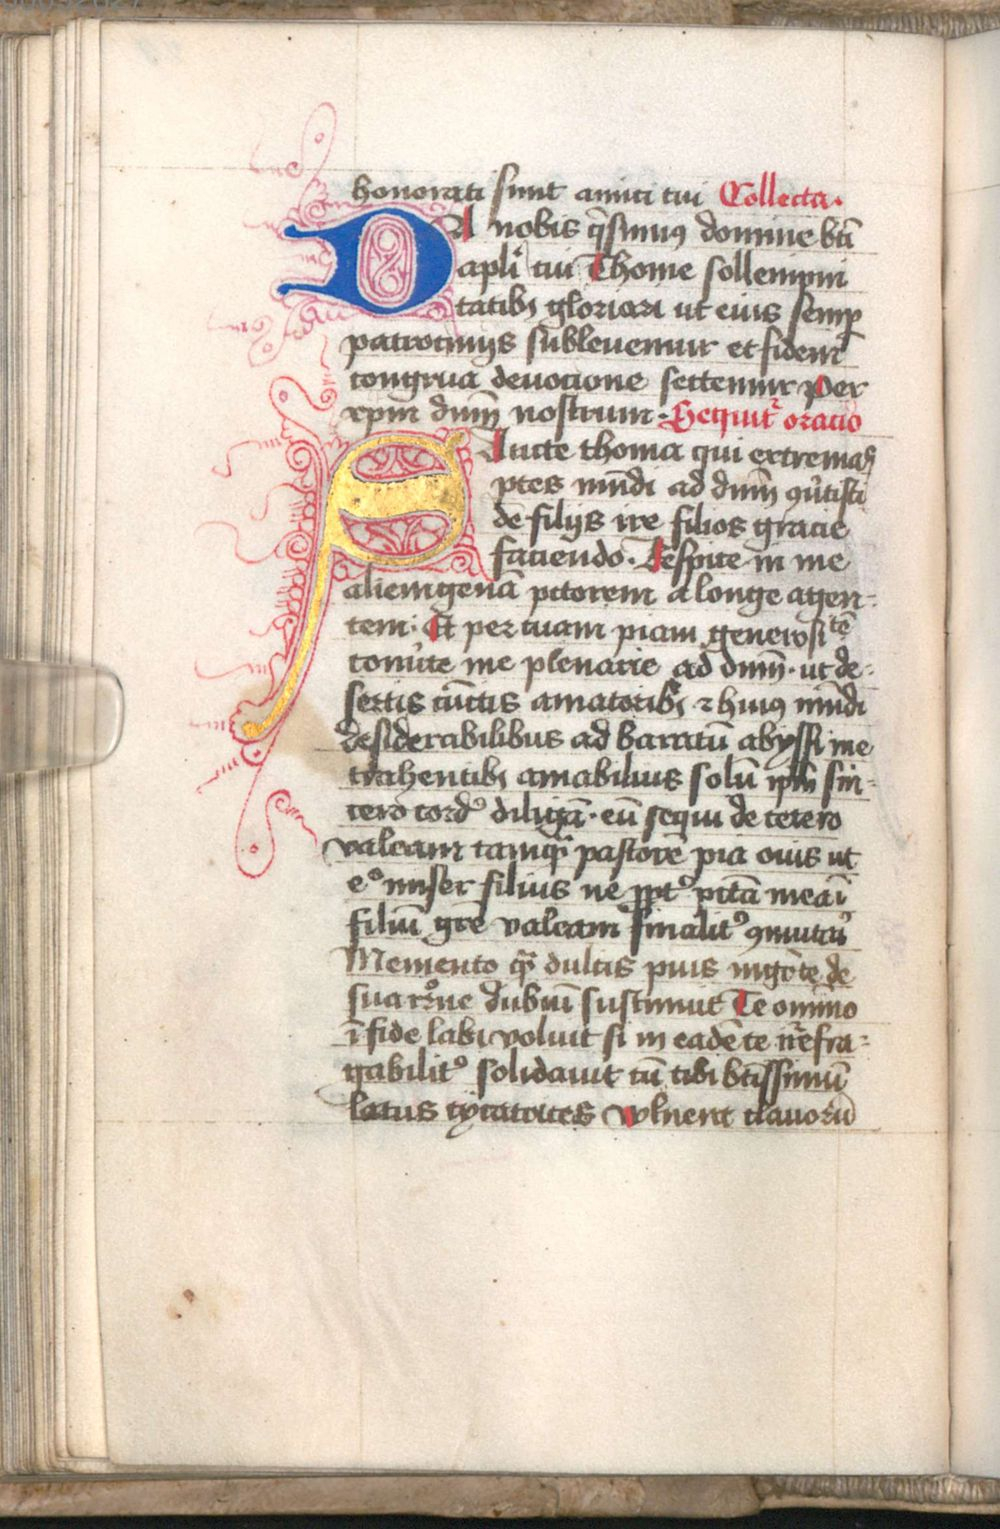 honorati sunt amici tui Collecta.
DA nobis q̄sumus domine bt̄i
apl̄i tui Thome sollempni
tatibꝫ gloriari ut eius semꝑ
patrocinijs subleuemur et fidem
congrua deuocione sectemur Per
xpm dnm̄ nostrum. Sequit᷑ oracio
Aucte thoma qui extremaꝝ
ptes mūdi ad dnm̄ ꝯūtisti
de filijs ire filios gracie
faciendo. Respice in me
alienigenā pctorem a longe agen-
tem. Et per tuam piam generositatē
conūte me plenarie ad dnm̄. ut de-
sertis cūctis amatoribꝫ ⁊ huiꝯ mūdi
desiderabilibus ad baratū abyssi me
trahentibꝫ amabilius solū ipm̄ sin-
cero corde diligā. eū sequi de cetero
valeam tamqͣ pastorē pia ouis ut
eͦ miser filius ne ꝓptꝰ pctā mea ī
filiū grē valeam finalitꝰ ꝯmutari
Memento qͣ dulcis pius
sua dubiū sustinuit Te omnino
ī fide labi voluit si in eadē te irrefra-
gabilitꝰ solidauit cū tibi bt̄issimū
latus cycatrices vulnerū clauorū